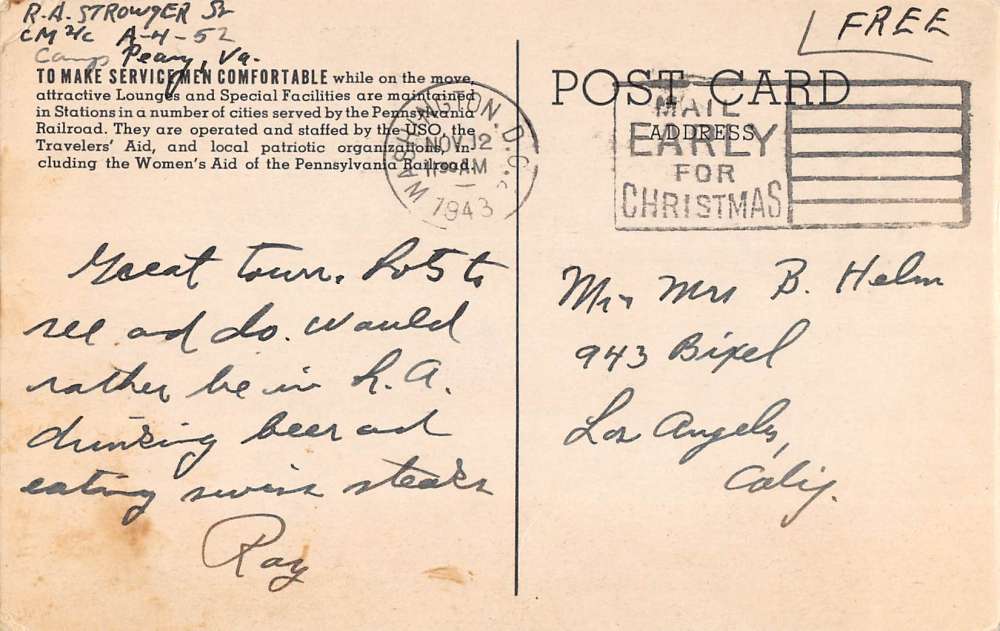 R.A. STROWGER Sr
CM 2/c A-4-52
Camp Peary, Va.
TO MAKE SERVICE MEN COMFORTABLE while on the move,
attractive Lounges and Special Facilities are maintained
in Stations in a number of cities served by the Pennsylvania
Railroad. They are operated and staffed by the USO, the
Travelers' Aid, and local patriotic organizations, in-
cluding the Women's Aid of the Pennsylvania Railroad.
WASHINGTON, D.C.
NOV 12
11 30 AM
1943
Great town. Lots to
see and do. Would
rather be in L.A.
drinking beer and
eating swiss steaks
Ray
FREE
POST CARD
ADDRESS
MAIL
EARLY
FOR
CHRISTMAS
Mr. Mrs B. Helm
943 Bixel
Los Angeles,
Calif.